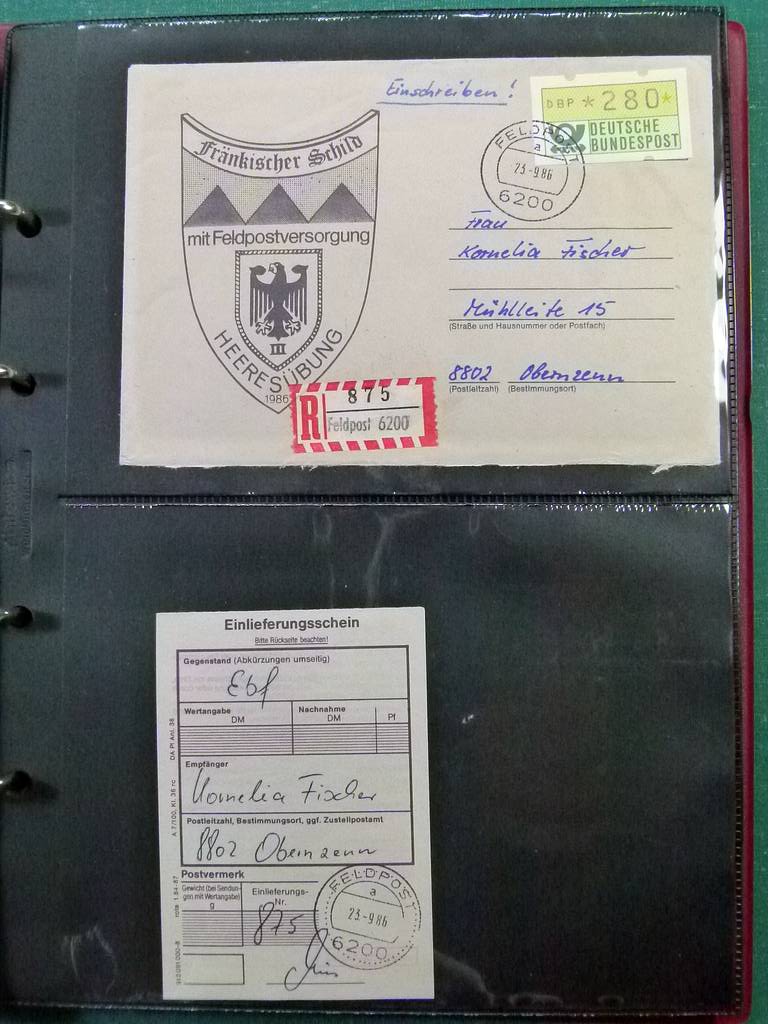 Einschreiben!
DBP *280*
DEUTSCHE
BUNDESPOST
FELDPOST
a
23.-9.86
6200
Fränkischer Schild
mit Feldpostversorgung
III
HEERESÜBUNG
1986
Frau
Kornelia Fischer
Mühlleite 15
(Straße und Hausnummer oder Postfach)
8802 Obernzenn
(Postleitzahl) (Bestimmungsort)
R 875
Feldpost 6200
Einlieferungsschein
Bitte Rückseite beachten!
Gegenstand (Abkürzungen umseitig)
Ebf
Wertangabe Nachnahme
DM DM Pf
Empfänger
Kornelia Fischer
Postleitzahl, Bestimmungsort, ggf. Zustellpostamt
8802 Obernzenn
Postvermerk
Gewicht (bei Sendungen mit Wertangabe)
g
Einlieferungs-
Nr.
875
FELDPOST
a
23.-9.86
6200
DA PI Anl. 36
A 7/100, Kl. 36 rc